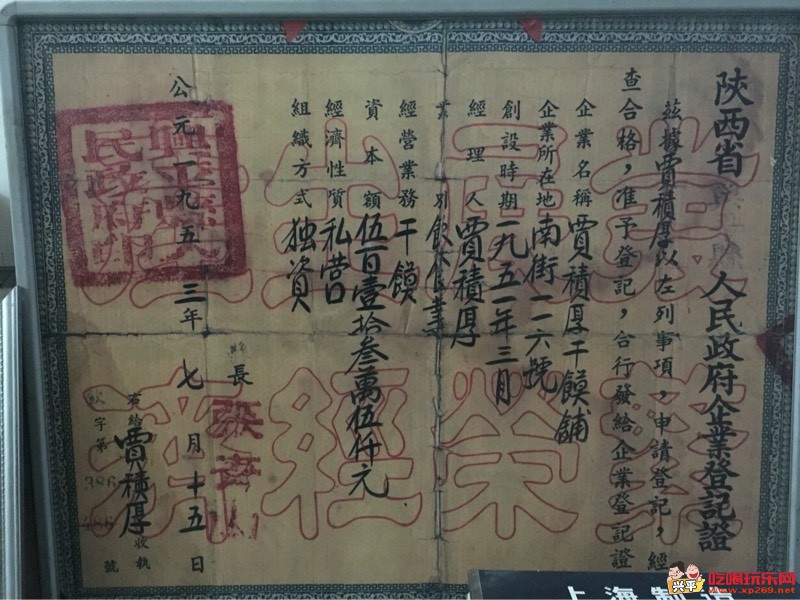 陝西省 人民政府企業登記證
兹據賈積厚以左列事項，申請登記，經
查合格，准予登記，合行發給企業登記證
企業名稱 賈積厚干饃舖
企業所在地 南街一一六號
創設時期 一九五一年三月
經理人 賈積厚
業別 飲食業
經營業務 干饃
資本額 伍百壹拾叁萬伍仟元
經濟性質 私營
組織方式 独資
公元一九五三年七月十五日
縣長
賈積厚 收執
字第 號
發展生產
繁榮經濟
興平縣人民政府印
上海製造
兴平
吃喝玩乐网
www.xp269.net